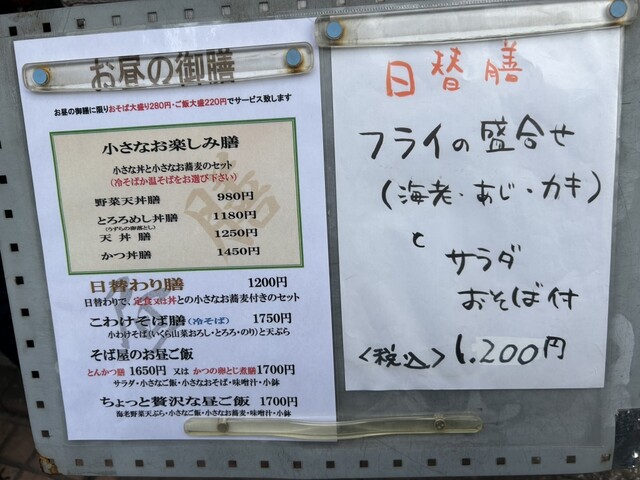 お昼の御膳
お昼の御膳に限りおそば大盛り280円・ご飯大盛220円でサービス致します
小さなお楽しみ膳
小さな丼と小さなお蕎麦のセット
(冷そばか温そばをお選び下さい)
野菜天丼膳 980円
とろろめし丼膳 1180円
(うずらの御落とし)
天丼膳 1250円
かつ丼膳 1450円
日替わり膳 1200円
日替わりで、定食又は丼との小さなお蕎麦付きのセット
こわけそば膳 (冷そば) 1750円
小わけそば(いくら山菜おろし・とろろ・のり)と天ぷら
そば屋のお昼ご飯
とんかつ膳 1650円 又は かつの卵とじ煮膳1700円
サラダ・小さなご飯・小さなおそば・味噌汁・小鉢
ちょっと贅沢な昼ご飯 1700円
海老野菜天ぷら・小さなご飯・小さなお蕎麦・味噌汁・小鉢
日替膳
フライの盛合せ
(海老・あじ・カキ)
と
サラダ
おそば付
<税込> 1,200円